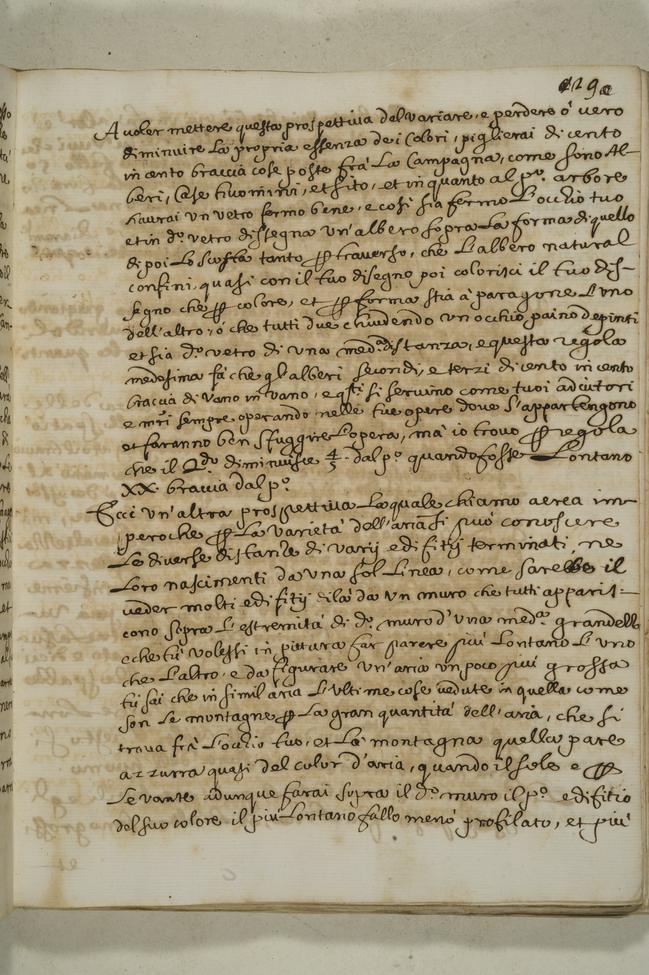 129
A voler mettere questa prospettiva del variare, e perdere ò vero
diminuire La propria essenza de i Colori, piglierai di cento
in cento braccia cose poste frà La Campagna, come sono Al-
beri, Case huomini, et sito, et in quanto al pº. arbore
haurai un vetro fermo bene, e così sia fermo L'occhio tuo
et in dº. vetro dissegna un'albero sopra La forma di quello
di poi Lo scosta tanto per traverso, che L'albero natural
confini, quasi con il tuo disegno poi colorisci il tuo dis-
segno che per colore, et per forma stia à paragone L'uno
dell'altro, ò che tutti due chiudendo un occhio paino depinti
et sia dº. vetro di una medª. distanza, e questa regola
medesima fà che gl'alberi secondi, e terzi di cento in cento
braccia di vano in vano, e qsti si servino come tuoi adiutori
e mri sempre operando nelle tue opere dove s'appartengono
et faranno ben sfuggire L'opera, mà io trovo per regola
che il 2do diminuisce 4/5 dal pº. quando fosse Lontano
XX. braccia dal pº.
Ecci un'altra prospettiva La quale chiamo aerea im-
peroche per La varietà dell'aria si può conoscere
Le diverse distanze di varij edifitij terminati, ne
Loro nascimenti da una sol Linea, come sarebbe il
veder molti edifitij di là da un muro che tutti apparis-
cono sopra L'estremità di dº. muro d'una medª. grandezza
e che tù volessi in pittura far parere più Lontano L'uno
che L'altro, e da figurare un'aria un poco più grossa
tù sai che in simil aria L'ultime cose vedute in quella come
son Le montagne per La gran quantità dell'aria, che si
trova frà L'occhio tuo, et La montagna quella pare
azzurra quasi del color d'aria, quando il sole e per
Levante adunque farai sopra il dº. muro il pº. edifitio
del suo colore il più Lontano fallo meno profilato, et più